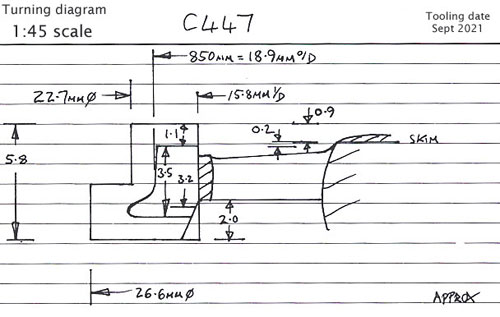 Turning diagram
1:45 scale
C447
Tooling date
Sept 2021
850MM = 18.9MM O/D
22.7MM Ø
15.8MM I/D
0.9
1.1
0.2
SKIM
5.8
3.5
3.2
2.0
26.6MM Ø
APPROX